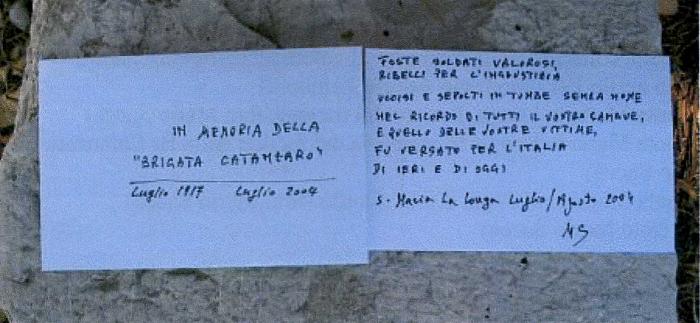 IN MEMORIA DELLA
"BRIGATA CATANZARO"
Luglio 1917 Luglio 2004
FOSTE SOLDATI VALOROSI,
RIBELLI PER L'INGIUSTIZIA
UCCISI E SEPOLTI IN TOMBE SENZA NOME
NEL RICORDO DI TUTTI IL VOSTRO SANGUE,
E QUELLO DELLE VOSTRE VITTIME,
FU VERSATO PER L'ITALIA
DI IERI E DI OGGI
S. Maria La Longa Luglio/Agosto 2004
MS